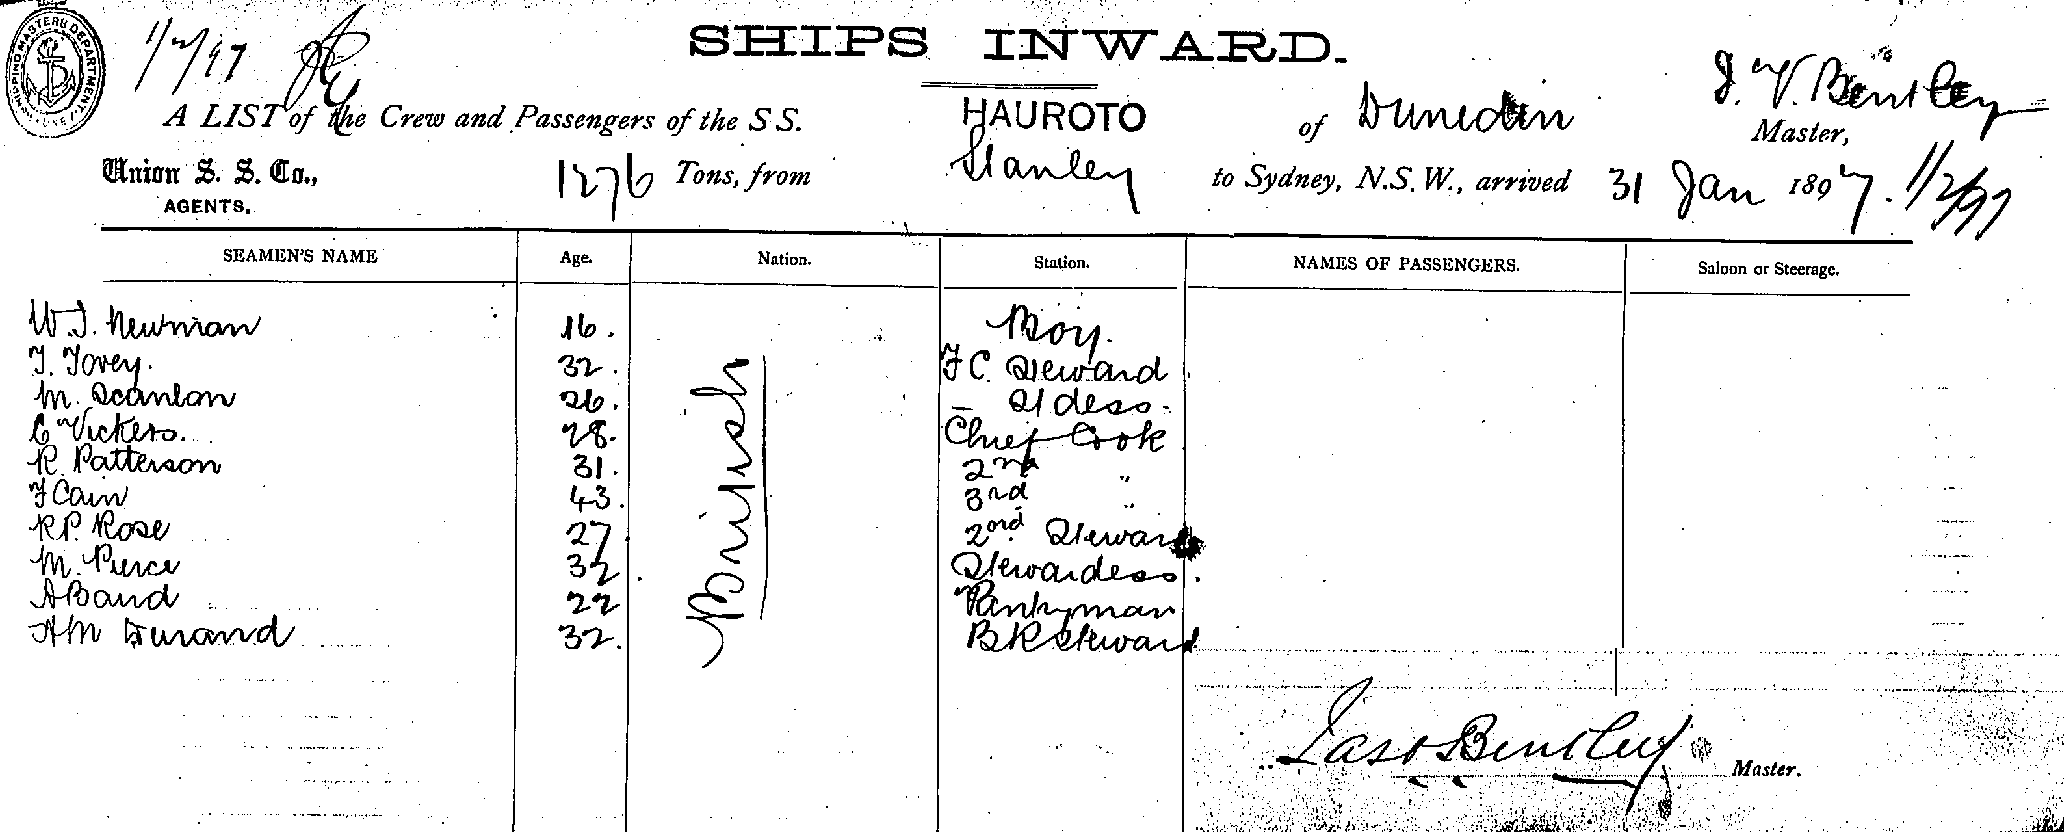 SHIPPING MASTER'S DEPARTMENT
1/2/97
SHIPS INWARD.
J. V. Bentley
A LIST of the Crew and Passengers of the S S. HAUROTO of Dunedin Master,
Union S. S. Co., 1276 Tons, from Stanley to Sydney, N.S.W., arrived 31 Jan 1897. 1/2/97
AGENTS.
SEAMEN'S NAME Age. Nation. Station. NAMES OF PASSENGERS. Saloon or Steerage.
W. J. Newman 16. Boy.
T. Tovey. 32. F C. Steward
M. Scanlon 26. – Stdess.
C Vickers. 28. Chief Cook
R. Patterson 31. 2nd "
F Cain 43. 3rd "
R P. Rose 27 2ord Steward
M. Pierce 32. Stewardess.
A Baud 22 Pantryman
A M Durand 32. B R Steward
British
Jas V Bentley Master.